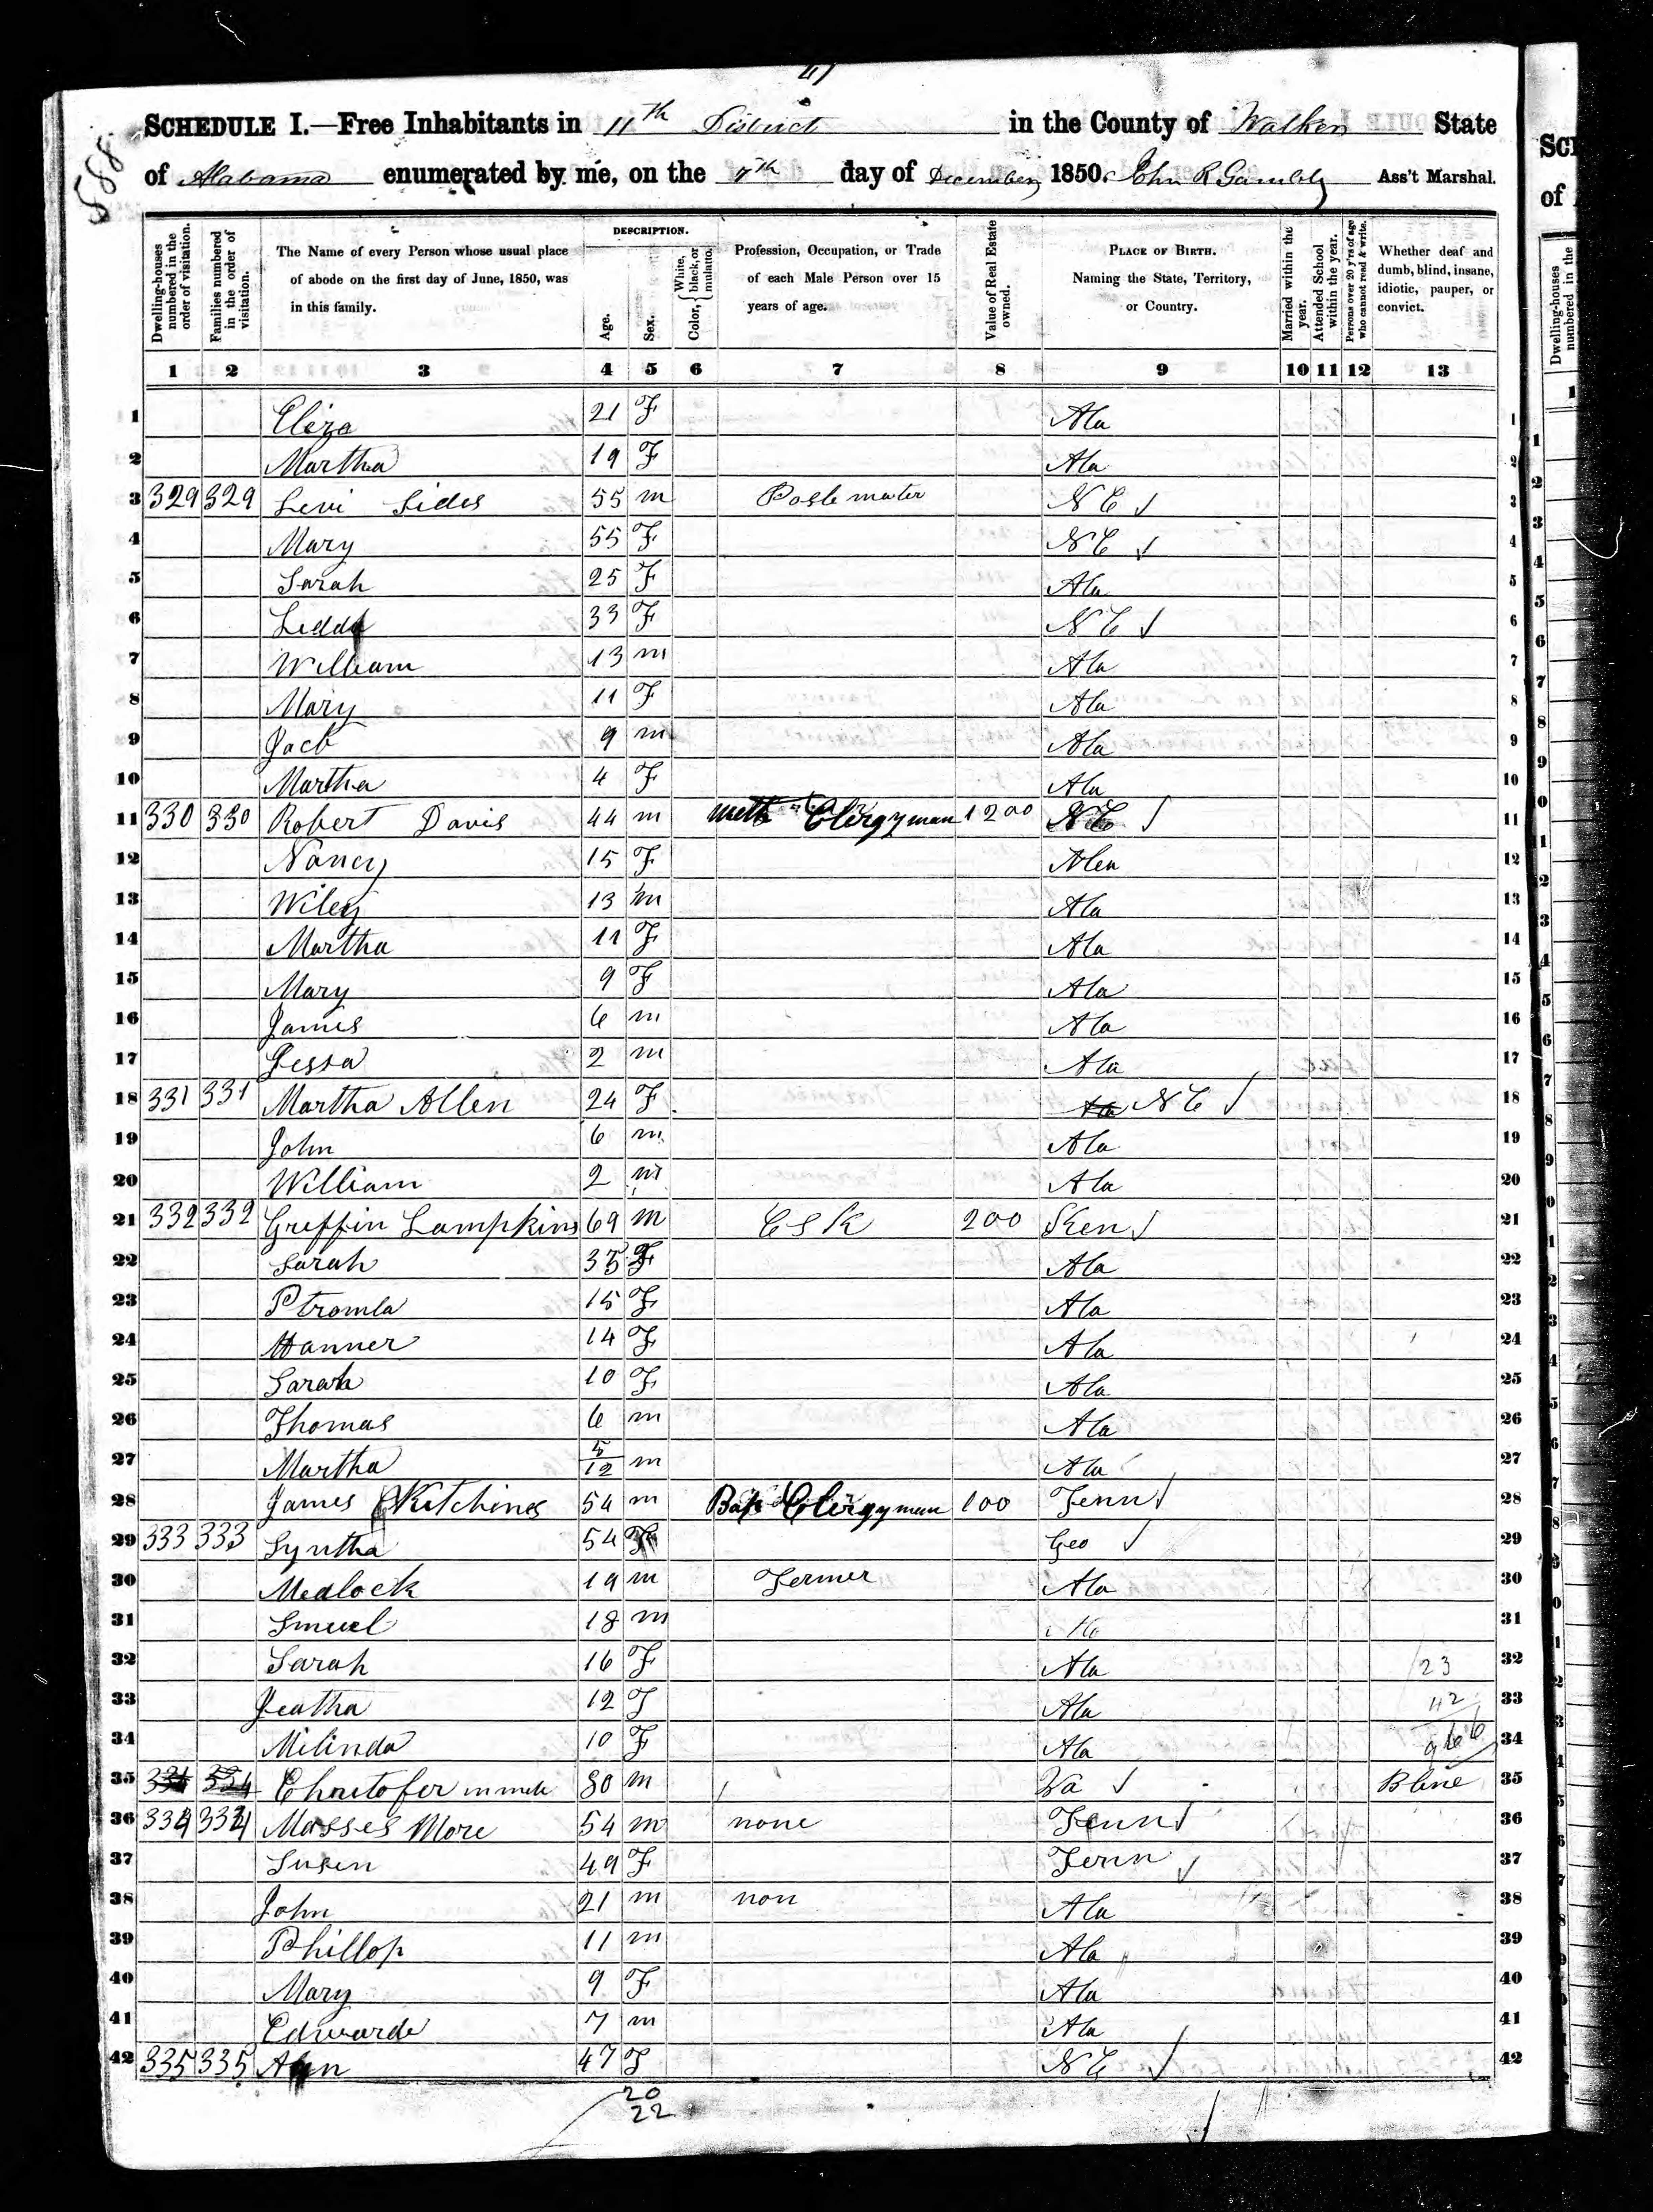 41
588
SCHEDULE I.—Free Inhabitants in 11th District in the County of Walker State
of Alabama enumerated by me, on the day of December 1850. John R Gambly Ass't Marshal.
Dwelling-houses numbered in the order of visitation.
Families numbered in the order of visitation.
The Name of every Person whose usual place of abode on the first day of June, 1850, was in this family.
DESCRIPTION.
Age.
Sex.
Color, { White, black, or mulatto.
Profession, Occupation, or Trade of each Male Person over 15 years of age.
Value of Real Estate owned.
PLACE OF BIRTH. Naming the State, Territory, or Country.
Married within the year.
Attended School within the year.
Persons over 20 y'rs of age who cannot read & write.
Whether deaf and dumb, blind, insane, idiotic, pauper, or convict.
1 2 3 4 5 6 7 8 9 10 11 12 13
1 Eliza 21 F Ala 1
2 Martha 19 F Ala 2
3 329 329 Levi Sides 55 m Postemater N C 3
4 Mary 55 F N C 4
5 Sarah 25 F Ala 5
6 Ledda 33 F N C 6
7 William 13 m Ala 7
8 Mary 11 F Ala 8
9 Jacb 9 m Ala 9
10 Martha 4 F Ala 10
11 330 330 Robert Davis 44 m Meth Clergyman 1200 N C 11
12 Nancy 15 F Ala 12
13 Wiley 13 m Ala 13
14 Martha 11 F Ala 14
15 Mary 9 F Ala 15
16 James 6 m Ala 16
17 Jessa 2 m Ala 17
18 331 331 Martha Allen 24 F Ala N C 18
19 John 6 m Ala 19
20 William 2 m Ala 20
21 332 332 Griffin Lampkins 69 m C S K 200 Ken 21
22 Sarah 35 F Ala 22
23 Ptromla 15 F Ala 23
24 Hanner 14 F Ala 24
25 Sarah 10 F Ala 25
26 Thomas 6 m Ala 26
27 Martha 5/12 m Ala 27
28 James Kitchines 54 m Bap Clergyman 100 Tenn 28
29 333 333 Syntha 54 F Geo 29
30 Medlock 19 m Fermer Ala 30
31 Smuel 18 m 31
32 Sarah 16 F Ala 23 32
33 Jeatha 12 F Ala 42 33
34 Milinda 10 F Ala 966 34
35 334 334 Chritofer 80 m Va Bline 35
36 334 334 Mosses More 54 m none Tenn 36
37 Susen 49 F Tenn 37
38 John 21 m non Ala 38
39 Phillop 11 m Ala 39
40 Mary 9 F Ala 40
41 Edwarde 7 m Ala 41
42 335 335 Ann 47 F N C 42
20
22